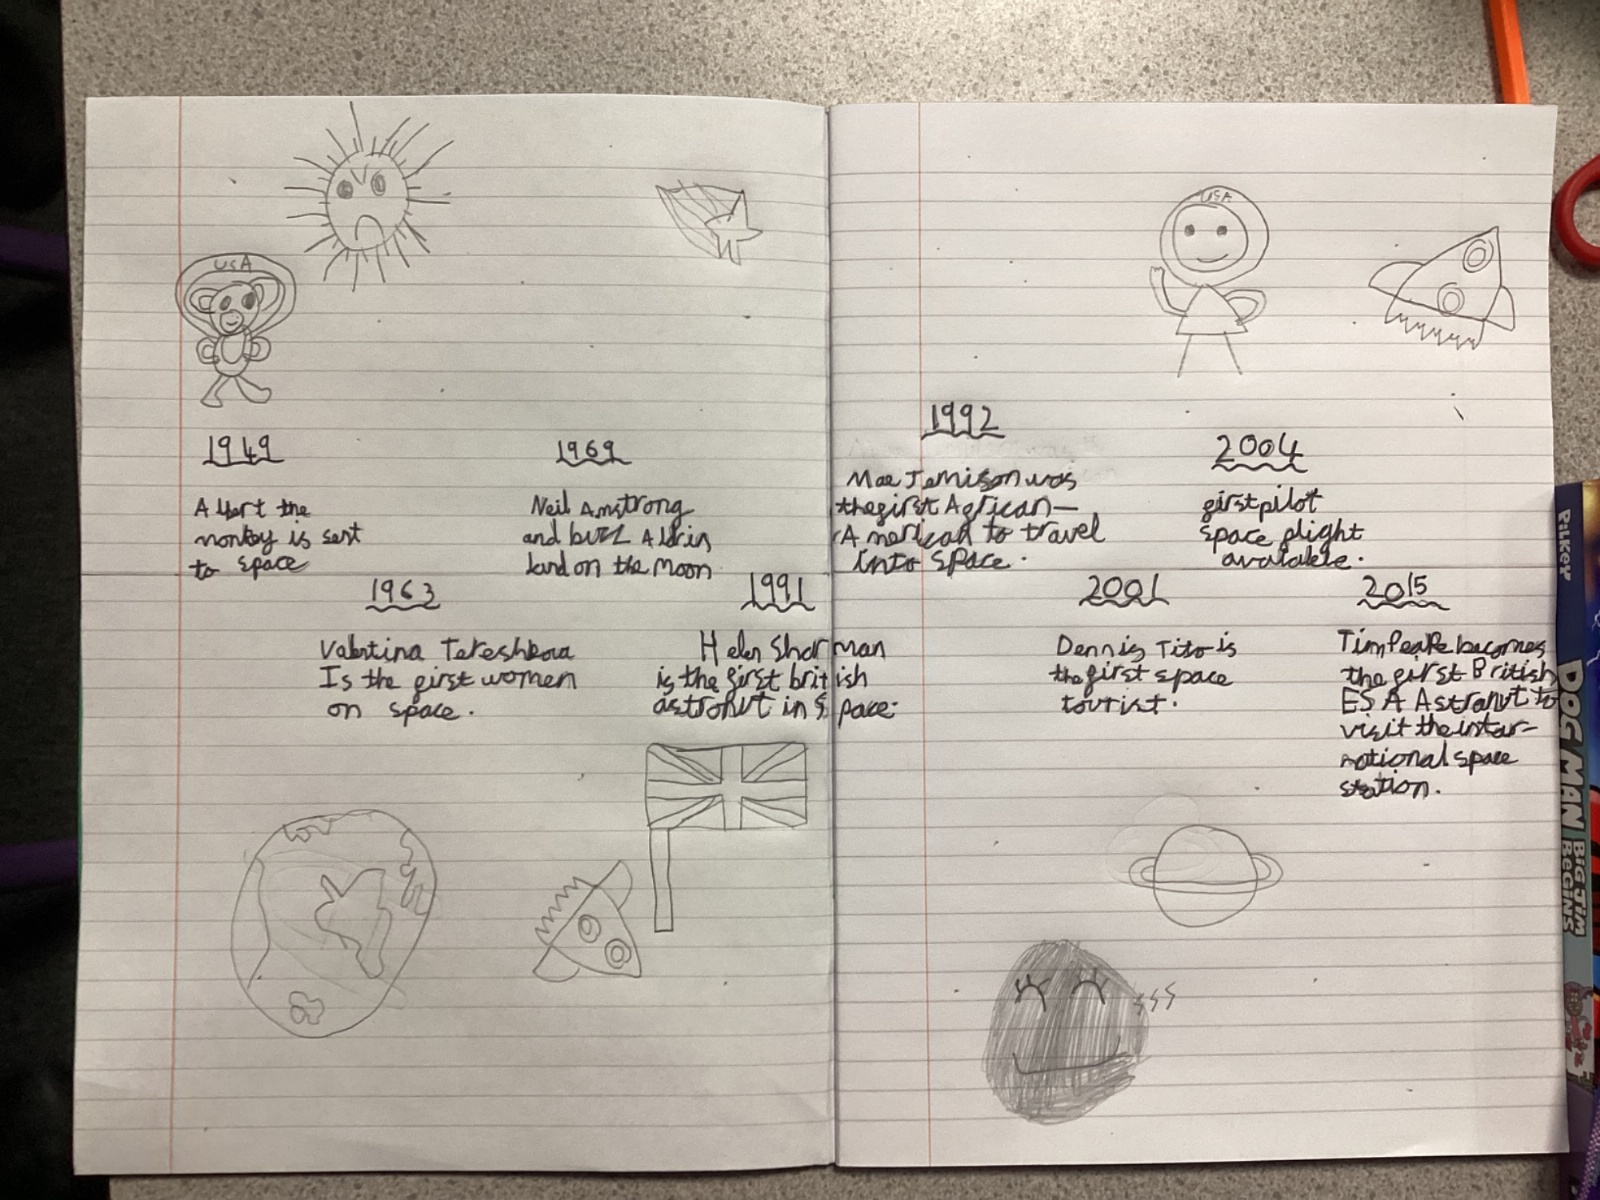 USA
1949
Albert the
monkey is sent
to space
1963
Valentina Tereshkova
Is the first women
on space.
1969
Neil Amstrong
and buzz Aldrin
land on the Moon
1991
Helen Sharman
is the first british
astronut in Space.
USA
1992
Mae Jemison was
the first African-
Americad to travel
into space.
2001
Dennis Tito is
the first space
tourist.
2004
first pilot
space plight
avalable.
2015
Tim Peake becomes
the first British
ESA Astranut to
visit the inter-
national space
station.
PILKEY
DOG MAN
BIG JIM
BEGINS